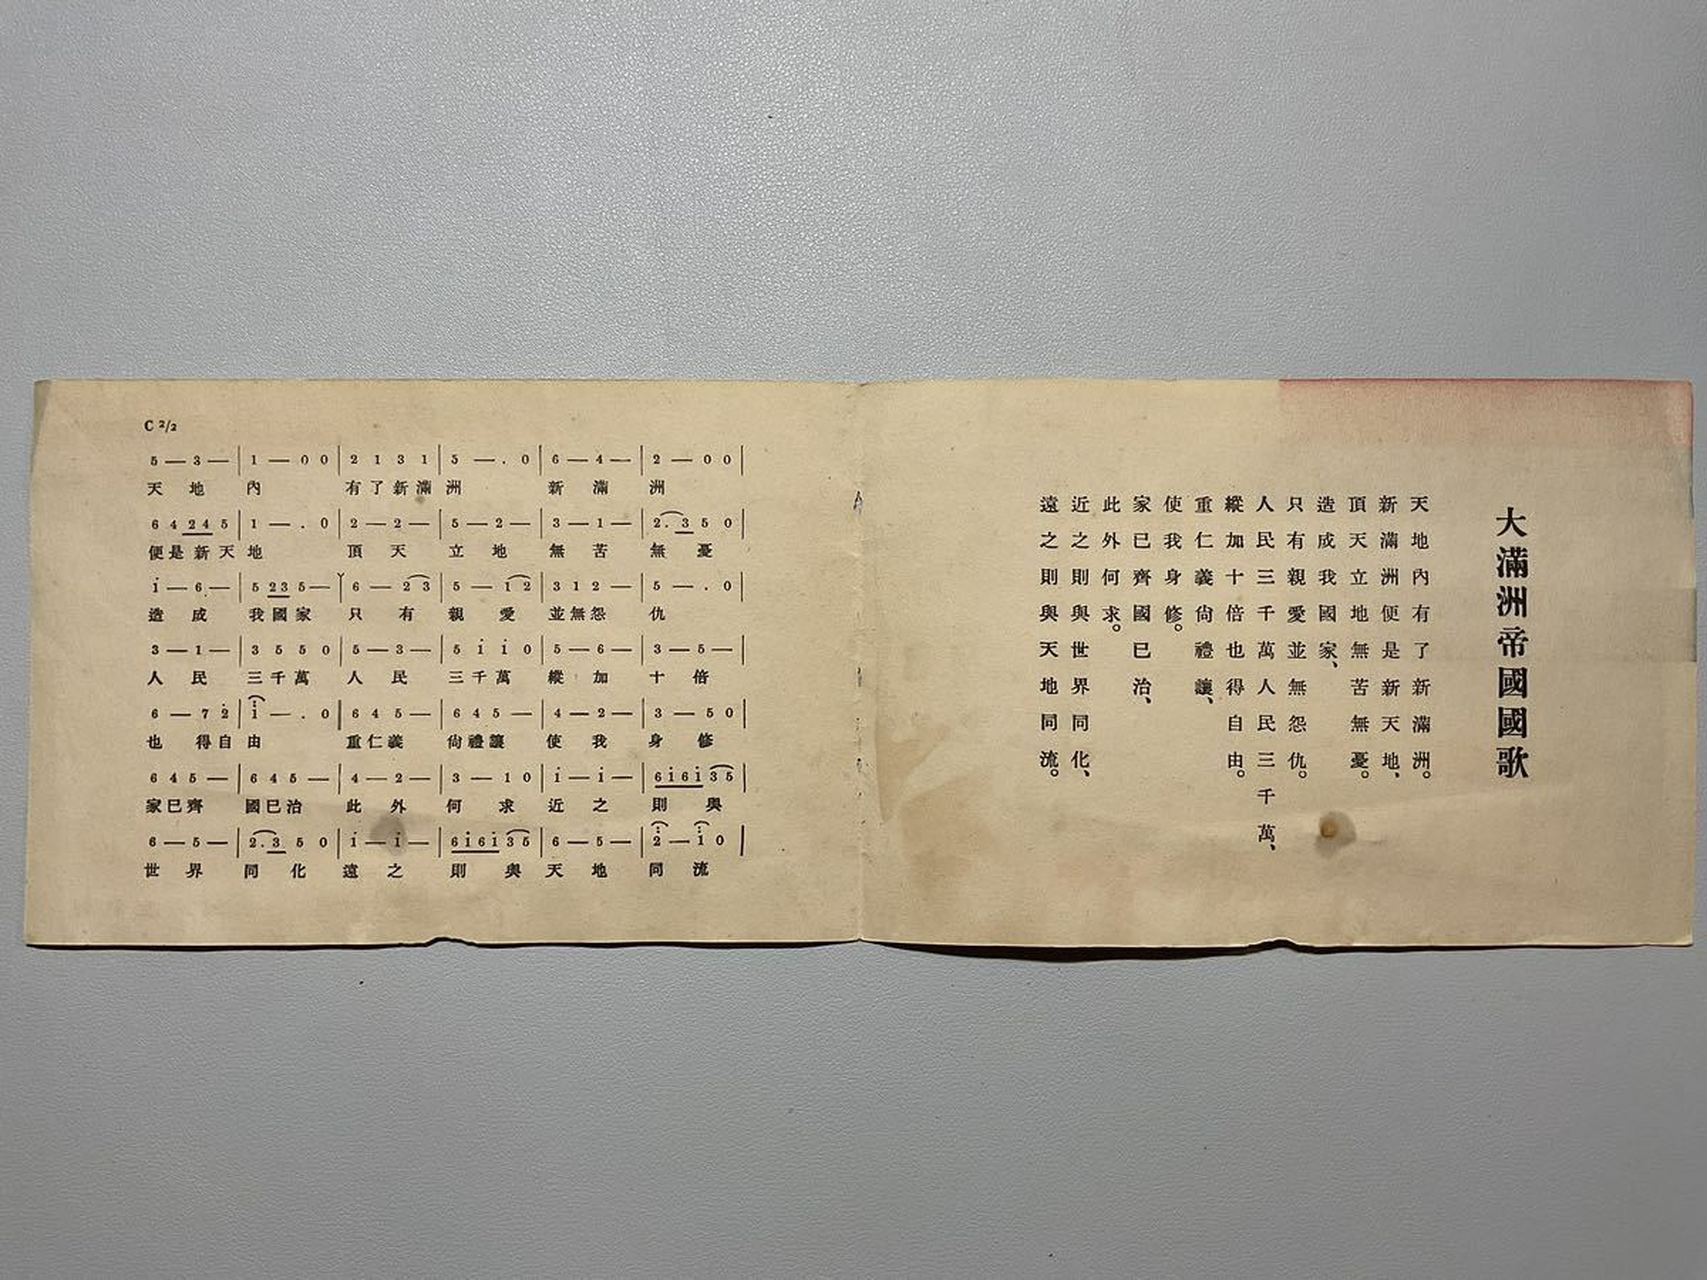 大滿洲帝國國歌
天地內有了新滿洲。
新滿洲便是新天地、
頂天立地無苦無憂。
造成我國家、
只有親愛並無怨仇。
人民三千萬人民三千萬、
縱加十倍也得自由。
重仁義尙禮讓、
使我身修。
家已齊國已治、
此外何求。
近之則與世界同化、
遠之則與天地同流。
C 2/2
5 — 3 — | 1 — 0 0 | 2 1 3 1 | 5 — . 0 | 6 — 4 — | 2 — 0 0 |
天 地 內 有了新滿洲 新 滿 洲
6 4 2 4 5 | 1 — . 0 | 2 — 2 — | 5 — 2 — | 3 — 1 — | 2. 3 5 0 |
便是新天地 頂 天 立 地 無 苦 無 憂
i — 6 — | 5 2 3 5 — | 6 — 2 3 | 5 — 1 2 | 3 1 2 — | 5 — . 0 |
造 成 我國家 只 有 親 愛 並無怨 仇
3 — 1 — | 3 5 5 0 | 5 — 3 — | 5 i i 0 | 5 — 6 — | 3 — 5 — |
人 民 三千萬 人 民 三千萬 縱 加 十 倍
6 — 7 2̇ | i — . 0 | 6 4 5 — | 6 4 5 — | 4 — 2 — | 3 — 5 0 |
也 得自 由 重仁義 尙禮讓 使 我 身 修
6 4 5 — | 6 4 5 — | 4 — 2 — | 3 — 1 0 | i — i — | 6 i 6 i 3 5 |
家已齊 國已治 此 外 何 求 近 之 則 與
6 — 5 — | 2. 3 5 0 | i — i — | 6 i 6 i 3 5 | 6 — 5 — | 2̇ — i 0 |
世 界 同 化 遠 之 則 與 天 地 同 流